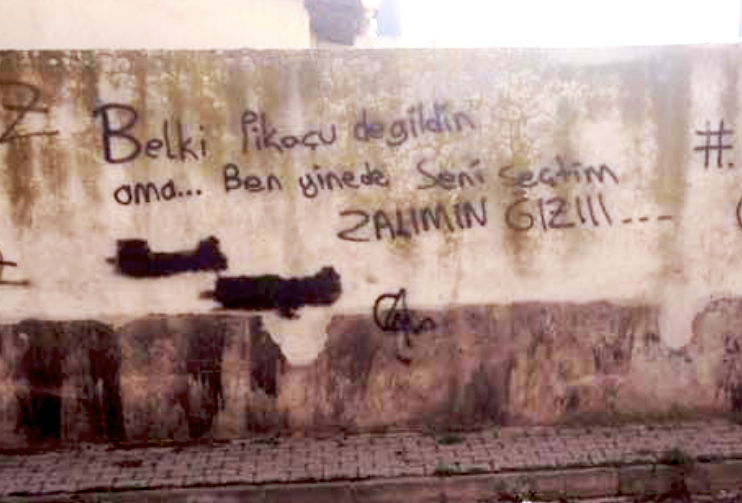 Belki Pikaçu degildin
ama... Ben yinede Seni seçtim
ZALIMIN GIZIII---
#